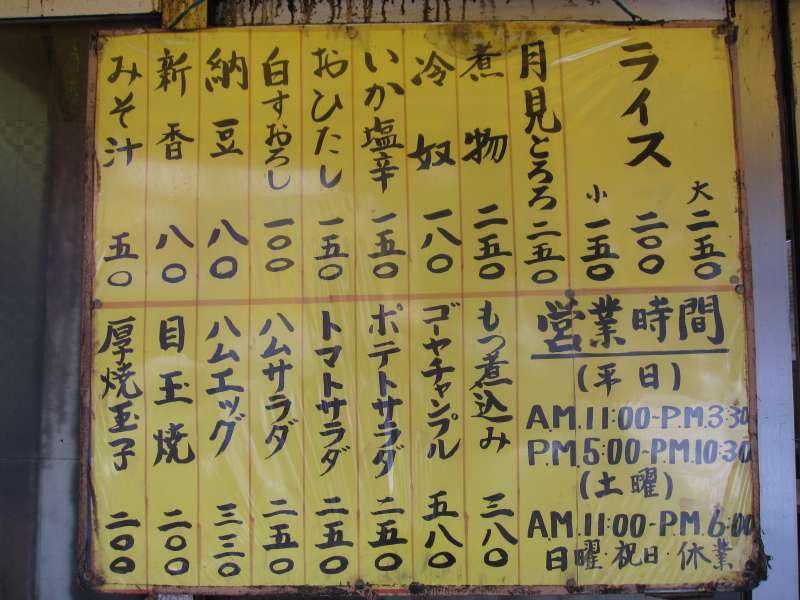 ライス
大 二五〇
二〇〇
小 一五〇
月見とろろ 二五〇
煮物 二五〇
冷奴 一八〇
いか塩辛 一五〇
おひたし 一五〇
白すおろし 一〇〇
納豆 八〇
新香 八〇
みそ汁 五〇
営業時間
(平日)
A.M.11:00-P.M.3:30
P.M.5:00-P.M.10:30
(土曜)
A.M.11:00-P.M.6:00
日曜・祝日・休業
もつ煮込み 三八〇
ゴーヤチャンプル 五八〇
ポテトサラダ 二五〇
トマトサラダ 二五〇
ハムサラダ 二五〇
ハムエッグ 三三〇
目玉焼 二〇〇
厚焼玉子 二〇〇